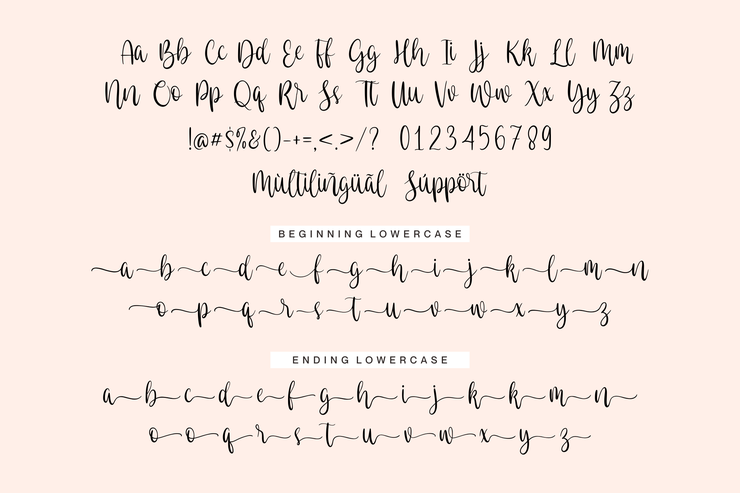 Aa Bb Cc Dd Ee Ff Gg Hh Ii Jj Kk Ll Mm
Nn Oo Pp Qq Rr Ss Tt Uu Vv Ww Xx Yy Zz
!@#$%&()-+=,<.>/? 0123456789
Mùltilíñgüãl Súppört
BEGINNING LOWERCASE
a b c d e f g h i j k l m n
o p q r s t u v w x y z
ENDING LOWERCASE
a b c d e f g h i j k k m n
o o q r s t u v w x y z